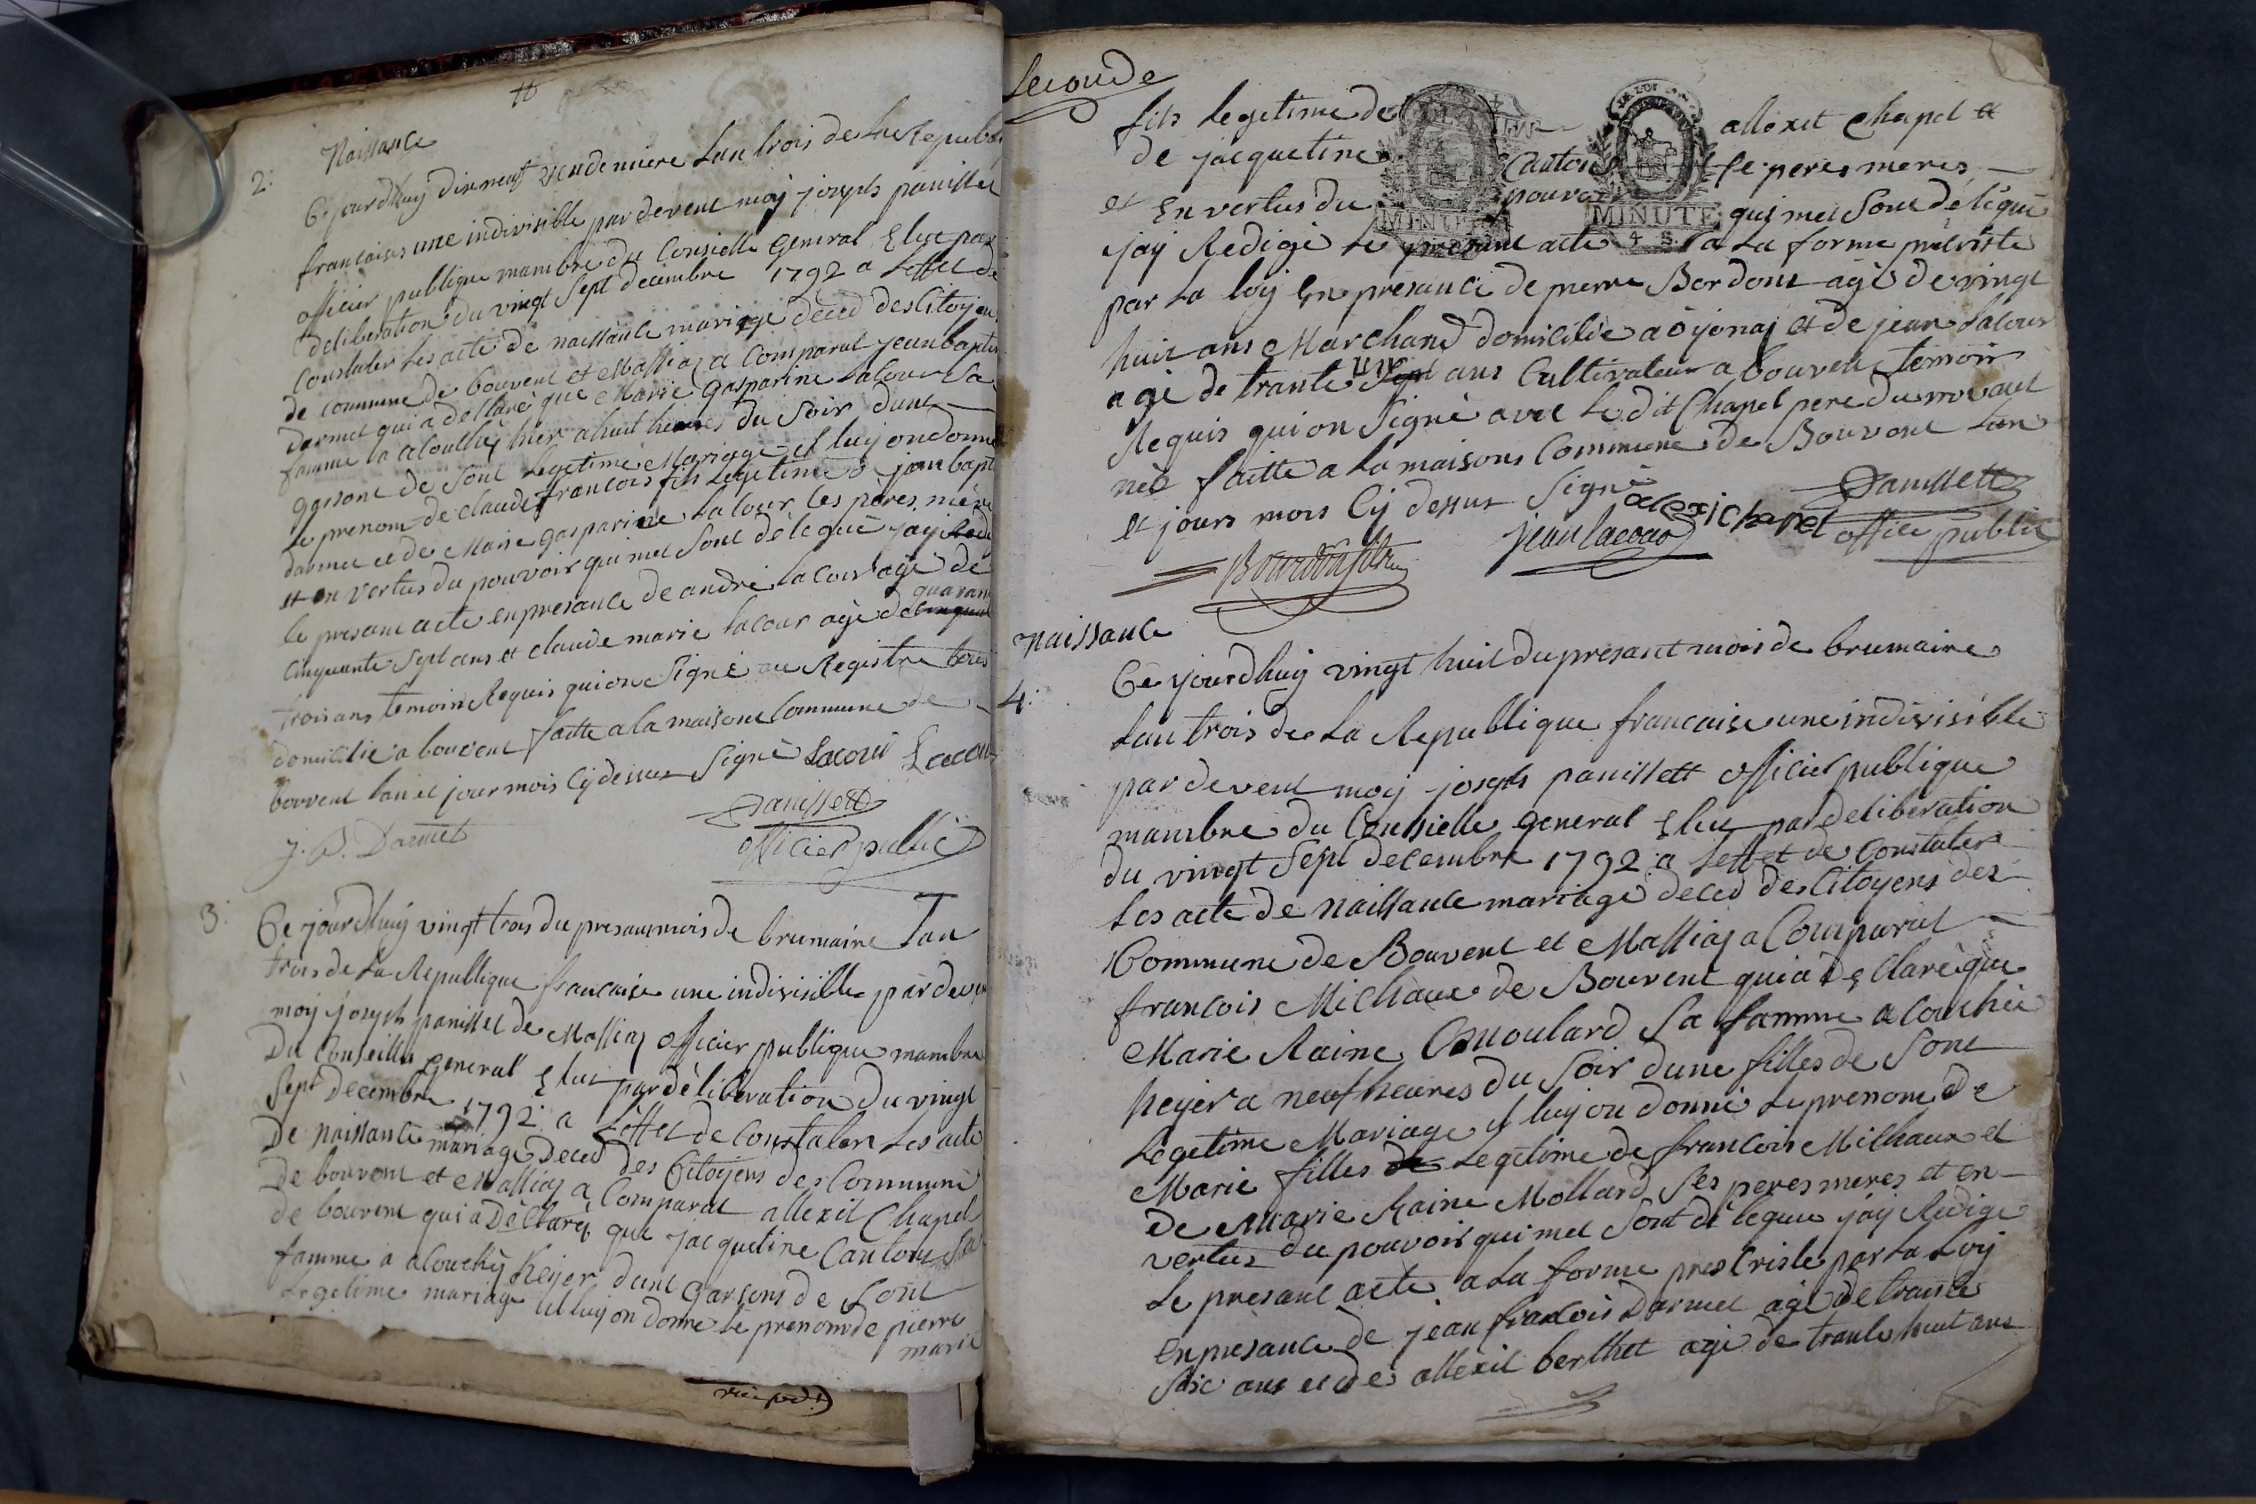 Naissance
2. Ce jourdhuy dixneuf vendemiere Lan trois de La Republi
francaises une indivisible pardevent moy joseph panisset
officier publique mambre du Consielle General Elue par
deliberation du vingt Sept decembre 1792 a Leffet de
Constater Les acte de naissance mariage deced des Citoyens
de commune de bouvent et Massiaz a Comparut jeanbaptis
darmet qui a declaré que Marie Gasparine Lacour Sa
famme a acouchéz hier a huit heures du Soir dune
garsont de Sont Legetime Mariage et luy on donne
Le prenom de claude francois fils Legetime de jeanbapt
darmet et de Marie gasparine Lacour Ces pères mère
et en vertus du pouvoir qui met Sont délégué jay Redi
Le presant acte en presance de andré Lacour agé de
quaran
Cinquante Sept ans et claude marie Lacour agé de cinquan
trois ans temoin Requis qui on Signé au Registre
domicilie a bouvent faitte a la maisons Commune de
bouvent Lan et jour mois Cy dessus Signé Lacour Lacour
Panissett
J. B. Darmet officier public
3. Ce jourdhuy vingt trois du presant mois de brumaire Lan
trois de La Republique francaise une indivisible pardeven
moy joseph panisset de Massiaz officier publique mambre
Du Conseille General Elue par déliberation du vingt
Sept Decembre 1792 a Leffet de Constater Les acte
De naissance mariage Deced des Citoyens des Commune
De bouvent et Massiaz a Comparut allexit Chapel
de bouvent qui a Déclaré que jacquetine Cantons Sa
famme a acouchéy heyer dunt garsons de Sont
Legetime mariage et luy on donne Le prenom de pierre
marie
Seconde
fils Legetime de allexit Chapel et
de jacquetine Canton Se peres meres
et En vertus du pouvoir qui met Sont délégué
MINUTE
MINUTE
4 S.
jay Redigé Le presant acte a La forme prescriste
par La loy En presance de pierre Bordont agé de vingt
huit ans Marchand domicilie a oyonaj et de jean Lacour
un
agé de trante Sept ans Cultivateur a bouvent temoin
Requis qui on Signé avec Le dit Chapel pere du nouvaut
néé faitte a La maisons Commune de Bouvent Lan
et jours mois Cy dessus Signé
Panissett
alexi chapel office public
jean lacour
Naissance
4. Ce jourdhuy vingt huit du presant mois de brumaire
Lan trois de La Republique francaise une indivisible
pardevent moy joseph panissett officier publique
mambre du Consielle general Elue par deliberation
du vingt Sept decembre 1792 a Leffet de Constater
Les acte de naissance mariage deced des Citoyens des
Commune de Bouvent et Massiaz a Comparut
francois Michaux de Bouvent qui a déclaré que
Marie Raine Moulard Sa famme acouchée
heyer a neuf heures du Soir dune filles de Sont
Legetime Mariage et luy on donné Le prenom de
Marie filles de Legetime de francois Michaux et
de Marie Raine Mollard Ses peres meres et en
vertus du pouvoir qui met Sont délégue jay Rédigé
Le presant acte a La forme prescriste par La Loy
En presance de jean francois Darmet agé de trante
Six ans et de allexit berthet agé de trante huit ans